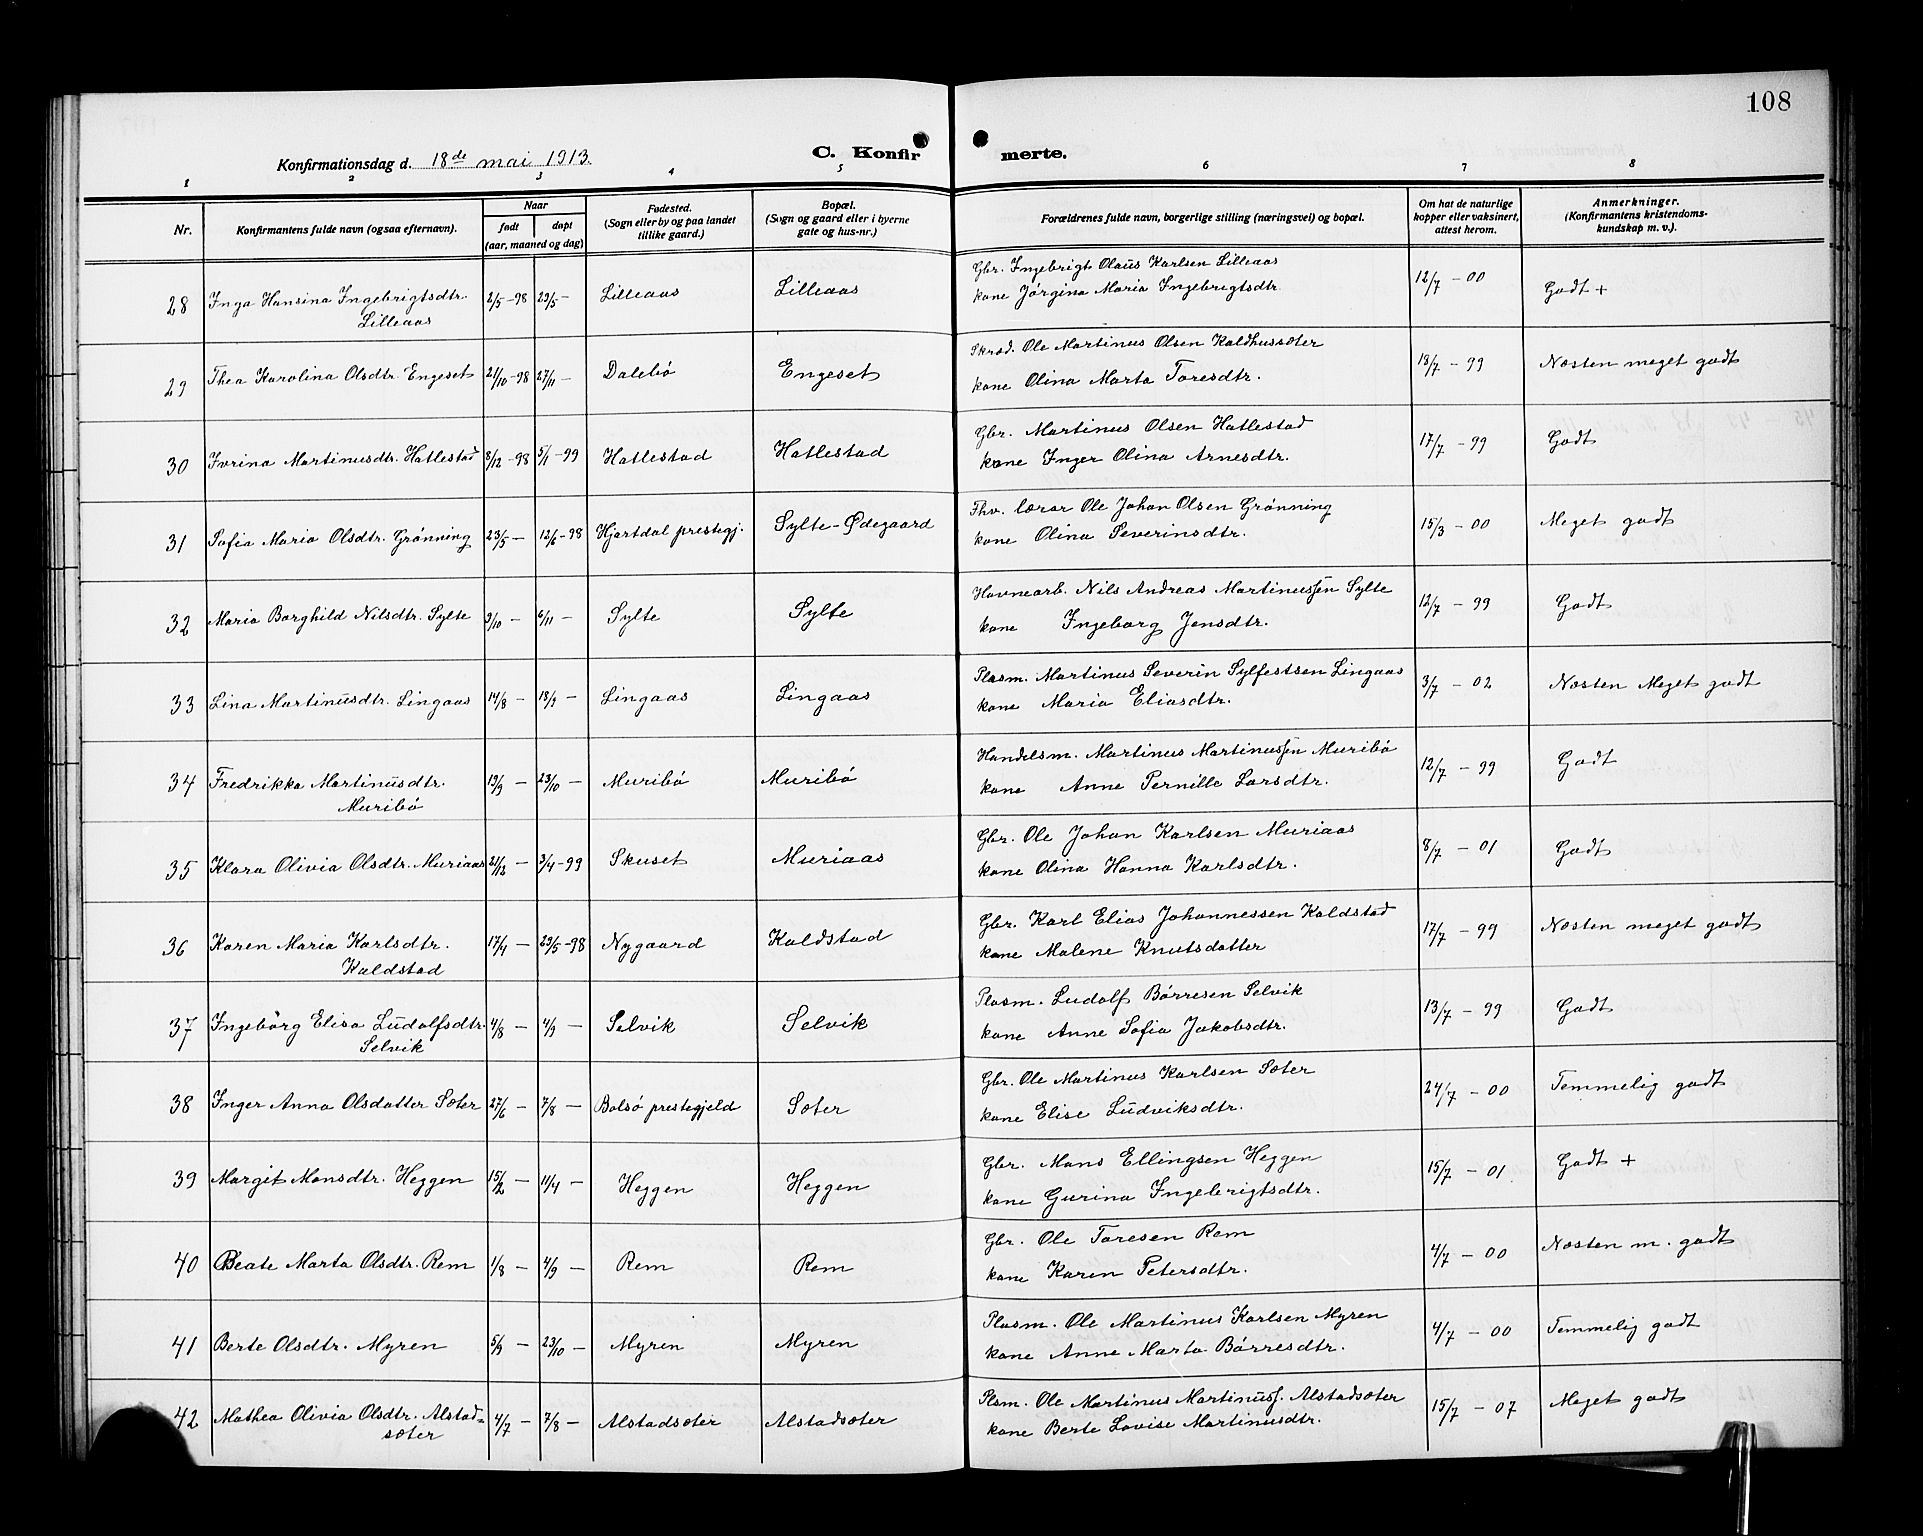 108
Konfirmationsdag d. 18de mai 1913.
C. Konfirmerte.
1 2 3 4 5 6 7 8
Nr. Konfirmantens fulde navn (ogsaa efternavn). Naar født døpt (aar, maaned og dag) Fødested. (Sogn eller by og paa landet tillike gaard.) Bopæl. (Sogn og gaard eller i byerne gate og hus-nr.) Forældrenes fulde navn, borgerlige stilling (næringsvei) og bopæl. Om hat de naturlige kopper eller vaksinert, attest herom. Anmerkninger. (Konfirmantens kristendomskundskap m. v.).
28 Inga Hansina Ingebrigtsdtr. Lilleaas 2/5-98 29/5- Lilleaas Lilleaas Gbr. Ingebrigt Olaus Karlsen Lilleaas
kone Jørgina Maria Ingebrigtsdtr. 12/7 - 00 Godt +
29 Thea Karolina Olsdtr. Engeset 21/10-98 27/11- Dalebø Engeset Skræd. Ole Martinus Olsen Kaldhussæter
kone Olina Marta Toresdtr. 18/7 - 99 Næsten meget godt
30 Ivrina Martinusdtr. Hatlestad 8/12-98 5/1-99 Hatlestad Hatlestad Gbr. Martinus Olsen Hatlestad
kone Inger Olina Arnesdtr. 17/7 - 99 Godt
31 Sofia Maria Olsdtr. Grønning 23/5- 12/6-98 Hjartdal prestegj. Sylte-Ødegaard Fhv. lærar Ole Johan Olsen Grønning
kone Olina Severinsdtr. 15/3 - 00 Meget godt
32 Maria Borghild Nilsdtr. Sylte 9/10- 6/11- Sylte Sylte Havnearb. Nils Andreas Martinussen Sylte
kone Ingeborg Jensdtr. 12/7 - 99 Godt
33 Lina Martinusdtr. Lingaas 14/8- 18/9- Lingaas Lingaas Plasm. Martinus Severin Sylfestsen Lingaas
kone Maria Eliasdtr. 3/7 - 02 Næsten Meget godt
34 Fredrikka Martinusdtr. Muribø 19/9- 23/10- Muribø Muribø Handelsm. Martinus Martinussen Muribø
kone Anne Pernille Larsdtr. 12/7 - 99 Godt
35 Klara Olivia Olsdtr. Muriaas 21/12- 3/4-99 Skuset Muriaas Gbr. Ole Johan Karlsen Muriaas
kone Olina Hanna Karlsdtr. 8/7 - 01 Godt
36 Karen Maria Karlsdtr. Kaldstad 17/4- 29/5-98 Nygaard Kaldstad Gbr. Karl Elias Johannessen Kaldstad
kone Malene Knutsdatter 17/7 - 99 Næsten meget godt
37 Ingebørg Elisa Ludolfsdtr. Selvik 4/8- 4/9- Selvik Selvik Plasm. Ludolf Børresen Selvik
kone Anne Sofia Jakobsdtr. 13/7 - 99 Godt
38 Inger Anna Olsdatter Sæter 27/6- 7/8- Bolsø prestegjeld Sæter Gbr. Ole Martinus Karlsen Sæter
kone Elise Ludviksdtr. 24/7 - 00 Temmelig godt
39 Margit Monsdtr. Heggen 15/2- 11/4- Heggen Heggen Gbr. Mons Ellingsen Heggen
kone Gurina Ingebrigtsdtr. 15/7 - 01 Godt +
40 Beate Marta Olsdtr. Rem 1/8- 4/9- Rem Rem Gbr. Ole Toresen Rem
kone Karen Petersdtr. 4/7 - 00 Næsten m. godt
41 Berte Olsdtr. Myren 5/9- 23/10- Myren Myren Plasm. Ole Martinus Karlsen Myren
kone Anne Marta Børresdtr. 4/7 - 00 Temmelig godt
42 Mathea Olivia Olsdtr. Alstadsæter 4/7- 7/8- Alstadsæter Alstadsæter Plsm. Ole Martinus Martinuss. Alstadsæter
kone Berte Lovise Martinusdtr. 15/7 - 07 Meget godt